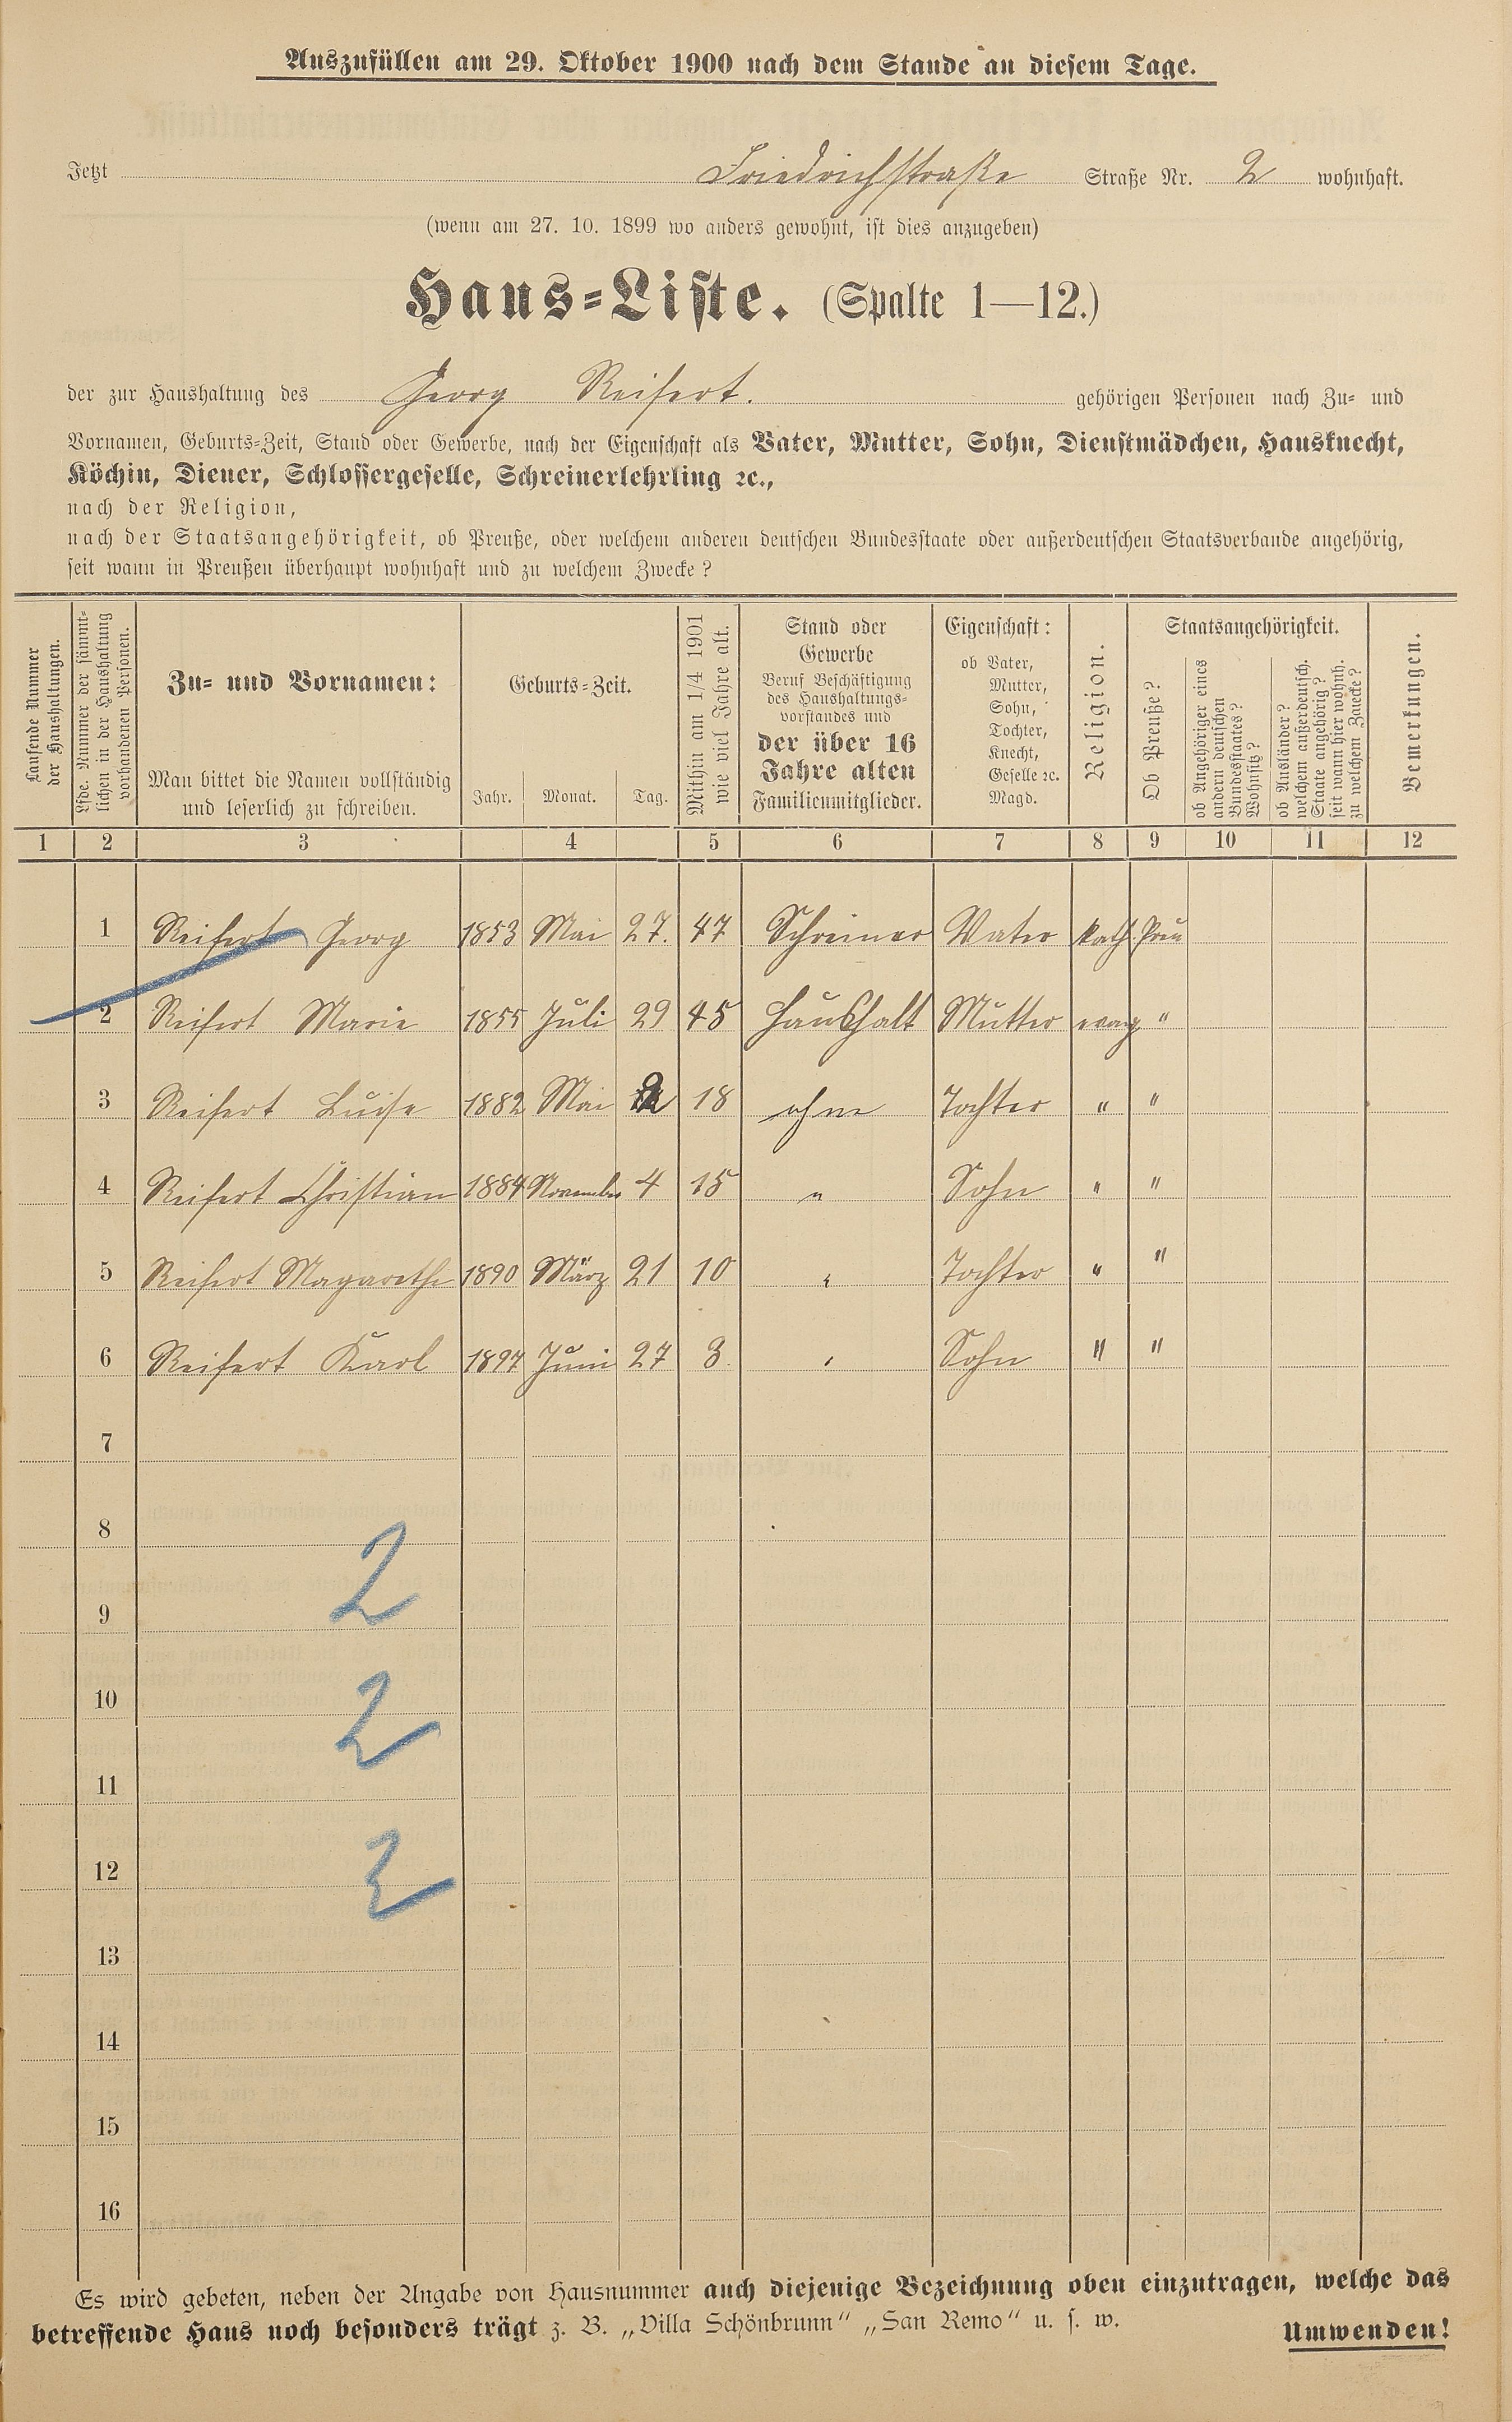 Auszufüllen am 29. Oktober 1900 nach dem Stande an diesem Tage.
Jetzt Friedrichstraße Straße Nr. 2 wohnhaft.
(wenn am 27. 10. 1899 wo anders gewohnt, ist dies anzugeben)
Haus-Liste. (Spalte 1—12.)
der zur Haushaltung des Georg Reifert. gehörigen Personen nach Zu- und
Vornamen, Geburts-Zeit, Stand oder Gewerbe, nach der Eigenschaft als Vater, Mutter, Sohn, Dienstmädchen, Hausknecht,
Köchin, Diener, Schlossergeselle, Schreinerlehrling ꝛc.,
nach der Religion,
nach der Staatsangehörigkeit, ob Preuße, oder welchem anderen deutschen Bundesstaate oder außerdeutschen Staatsverbande angehörig,
seit wann in Preußen überhaupt wohnhaft und zu welchem Zwecke?
Laufende Nummer
der Haushaltungen.
Lfde. Nummer der sämmt-
lichen in der Haushaltung
vorhandenen Personen.
Zu- und Vornamen:
Man bittet die Namen vollständig
und leserlich zu schreiben.
Geburts-Zeit.
Jahr. Monat. Tag.
Mithin am 1/4 1901
wie viel Jahre alt.
Stand oder
Gewerbe
Beruf Beschäftigung
des Haushaltungs-
vorstandes und
der über 16
Jahre alten
Familienmitglieder.
Eigenschaft:
ob Vater,
Mutter,
Sohn,
Tochter,
Knecht,
Geselle ꝛc.
Magd.
Religion.
Staatsangehörigkeit.
Ob Preuße?
ob Angehöriger eines
andern deutschen
Bundesstaates?
Wohnsitz?
ob Ausländer?
welchem außerdeutsch.
Staate angehörig?
seit wann hier wohnh.
zu welchem Zwecke?
Bemerkungen.
1 2 3 4 5 6 7 8 9 10 11 12
1 Reifert Georg 1853 Mai 27. 47 Schreiner Vater kath. Preu
2 Reifert Marie 1855 Juli 29 45 Haushalt Mutter evang "
3 Reifert Luise 1882 Mai 18 ohne Tochter " "
4 Reifert Christian 1884 November 4 15 " Sohn " "
5 Reifert Magarethe 1890 März 21 10 " Tochter " "
6 Reifert Karl 1897 Juni 27 3 " Sohn " "
7
8
2
9
10
2
11
12
2
13
14
15
16
Es wird gebeten, neben der Angabe von Hausnummer auch diejenige Bezeichnung oben einzutragen, welche das
betreffende Haus noch besonders trägt z. B. „Villa Schönbrunn“ „San Remo“ u. s. w.
Umwenden!